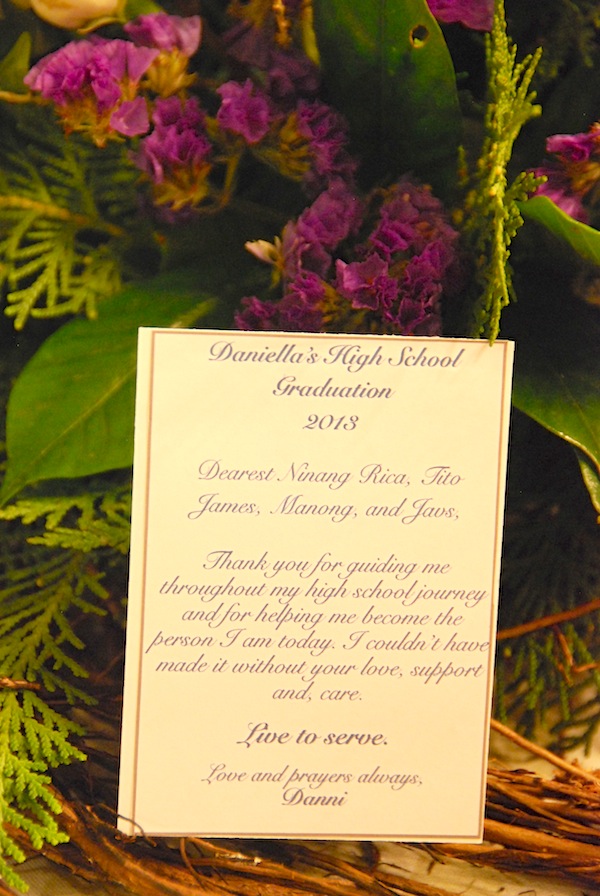 Daniella's High School
Graduation
2013
Dearest Ninang Rica, Tito
James, Manong, and Javs,
Thank you for guiding me
throughout my high school journey
and for helping me become the
person I am today. I couldn't have
made it without your love, support
and, care.
Live to serve.
Love and prayers always,
Danni